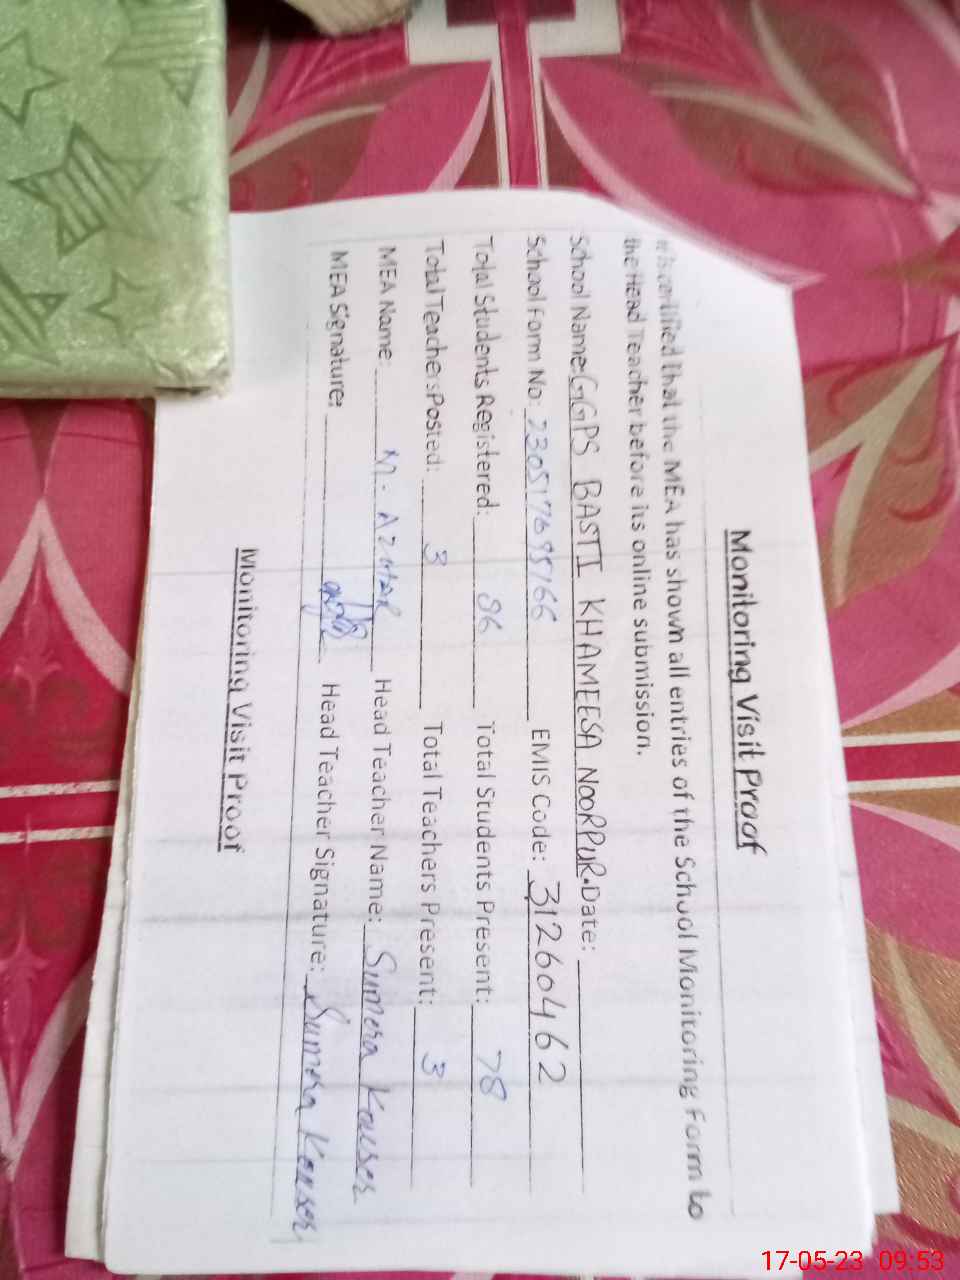 Monitoring Visit Proof
It is certified that the MEA has shown all entries of the School Monitoring Form to
the Head Teacher before its online submission.
School Name: GGPS BASTI KHAMEESA NOORPUR. Date:
School Form No: EMIS Code: 31260462
Total Students Registered: 86 Total Students Present: 78
Total Teachers Posted: 3 Total Teachers Present: 3
MEA Name: M. AZHAR Head Teacher Name: Sumera Kouser
MEA Signature: Head Teacher Signature: Sumera Kouser
Monitoring Visit Proof
17-05-23 09:53